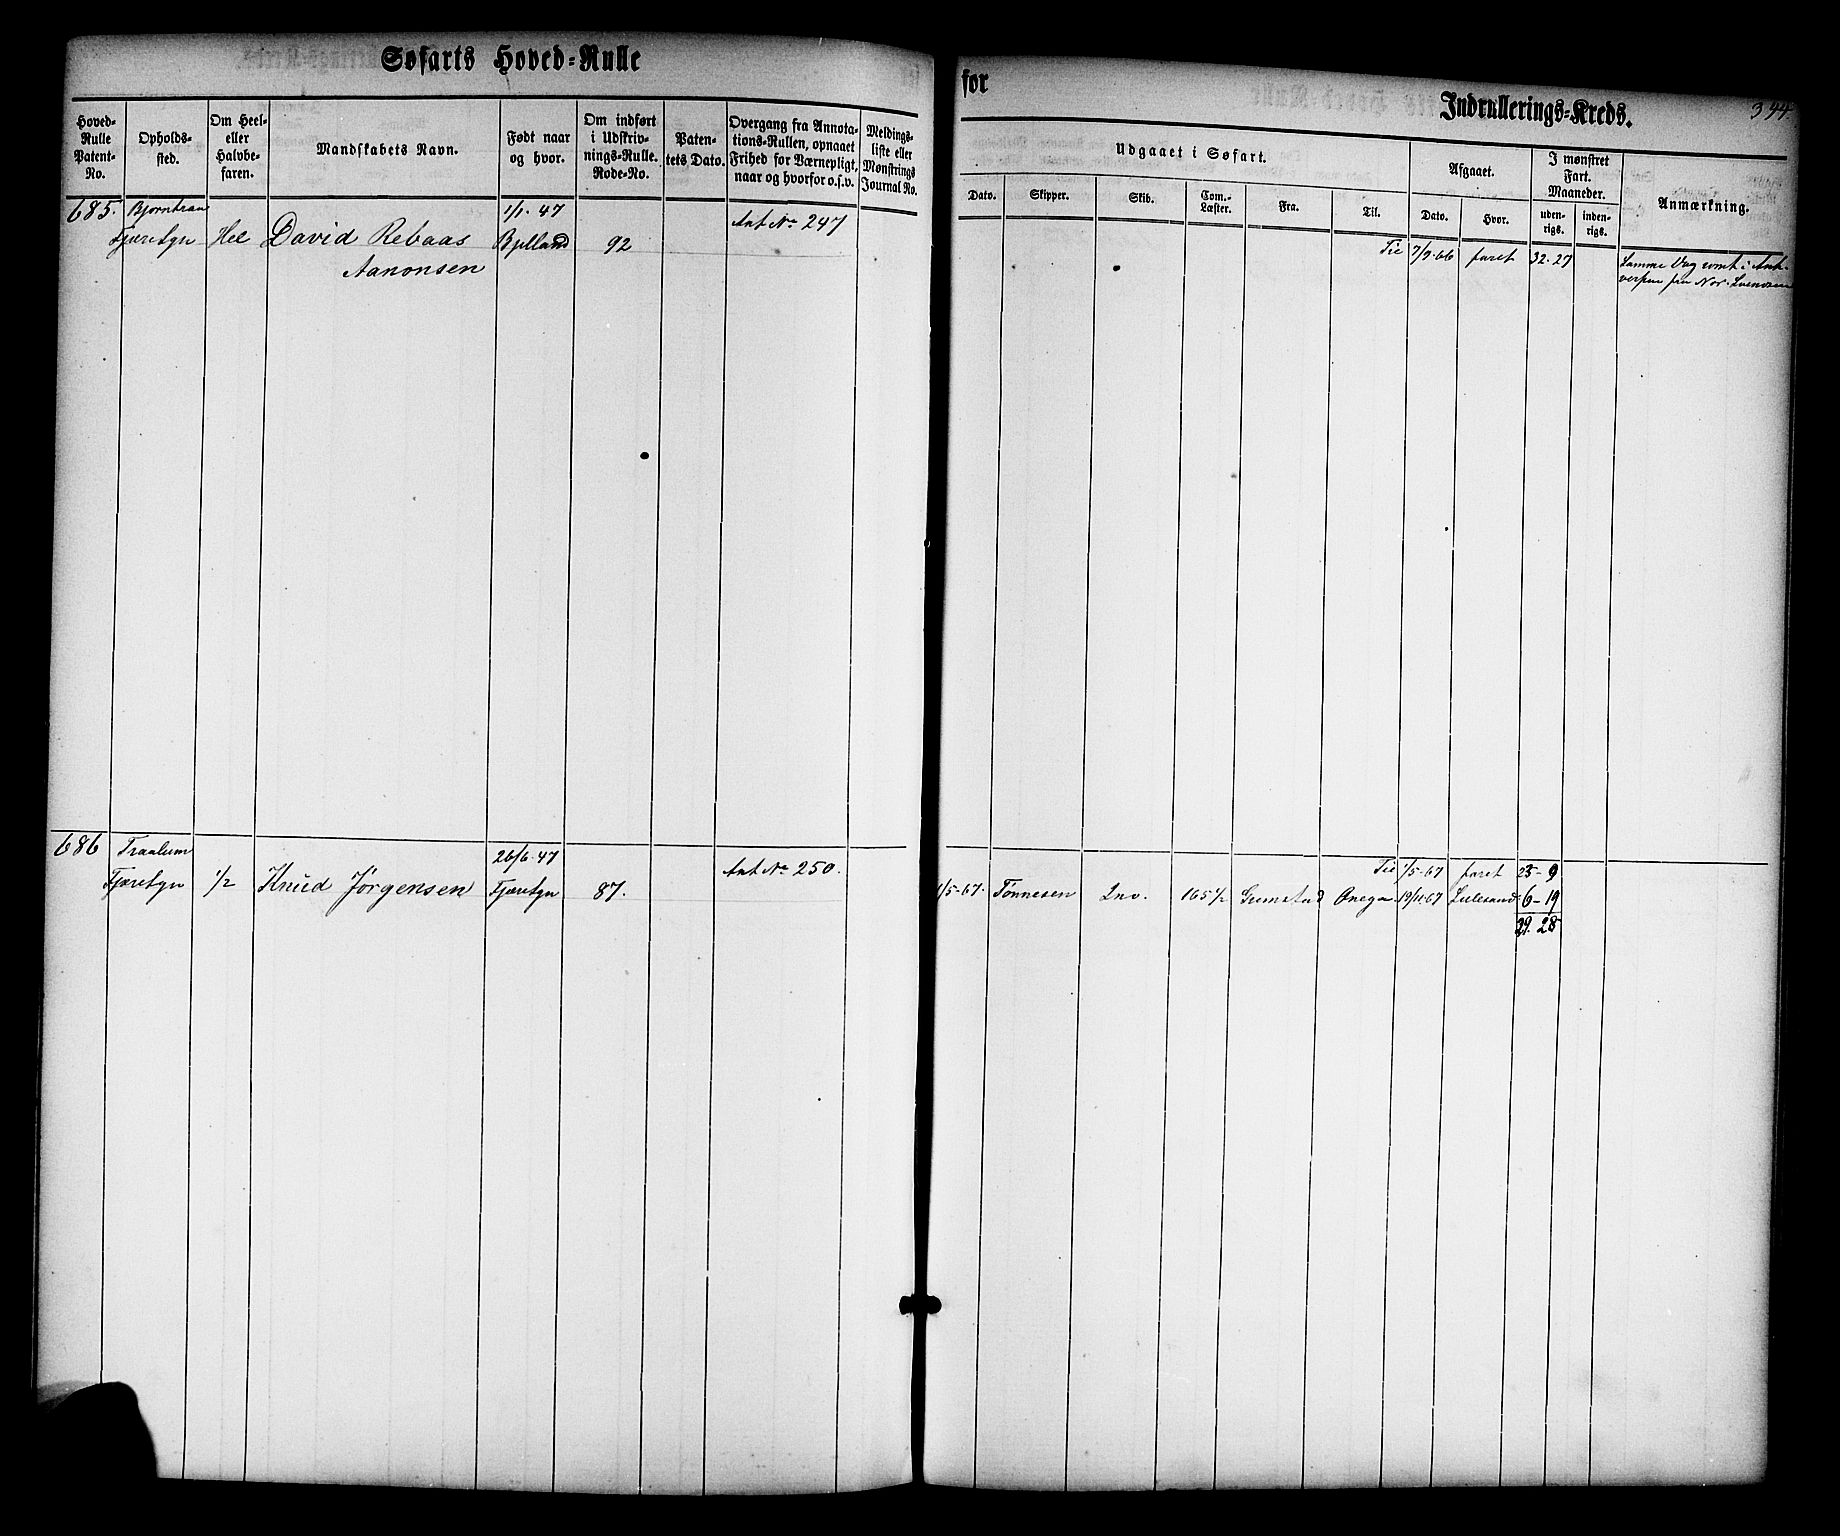 Søfarts Hoved-Rulle
for
Indrullerings-Kreds.
394
Hoved-
Rulle
Patent-
No.
Opholds-
sted.
Om Heel-
eller
Halvbe-
faren.
Mandskabets Navn.
Født naar
og hvor.
Om indført
i Udskriv-
nings-Rulle.
Rode-No.
Paten-
tets Dato.
Overgang fra Annota-
tions-Rullen, opnaaet
Frihed for Værnepligt,
naar og hvorfor o.s.v.
Meldings-
liste eller
Mønstrings
Journal No.
Udgaaet i Søfart.
Dato.
Skipper.
Skib.
Com.-
Læster.
Fra.
Til.
Afgaaet.
Dato.
Hvor.
I mønstret
Fart.
Maaneder.
uden-
rigs.
inden-
rigs.
Anmærkning.
685. 1/1. 47 Ant No 247
Fjæresgn Hel David Rebaas Bjelland 92
Aanonsen
Til 7/9. 66 faret 32. 27
Samme Dag rømt i Ant-
verpen fra Nor.
686 Traalum 26/6. 47 Ant No 250.
Fjæresgn 1/2 Knud Jørgensen Fjæresgn 87.
Til 1/5-67 faret 23-9
1/5-67. Tønnesen 165 1/2 Grimstad Onega 19/11 67 Lillesand 6-19
29. 28